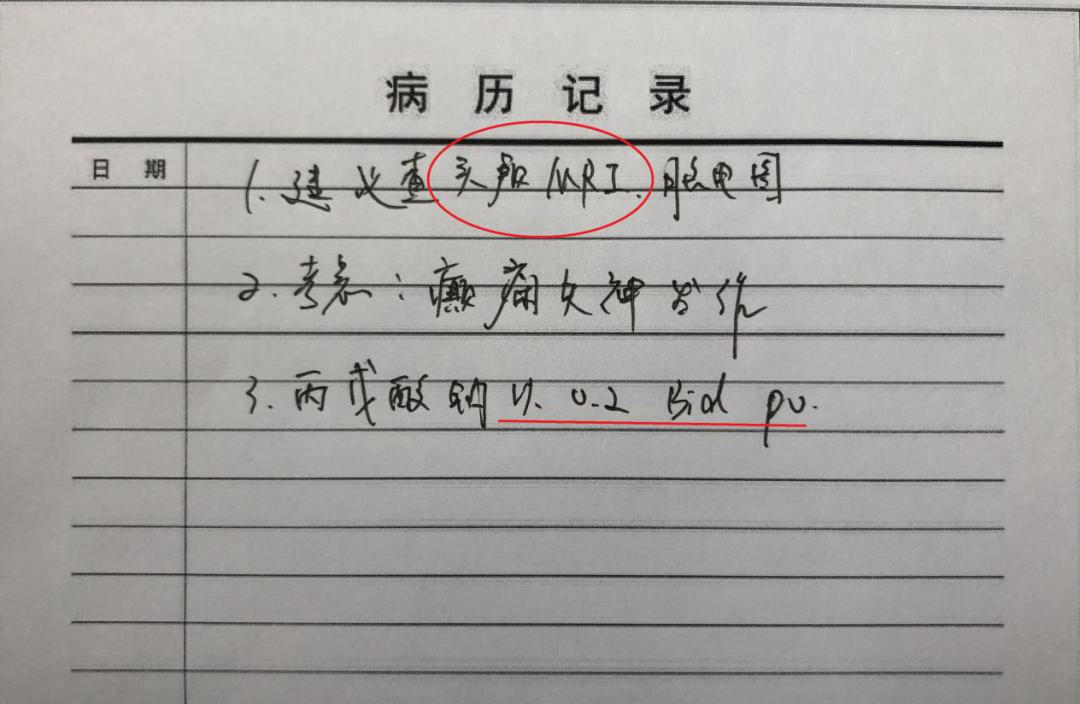 病历记录
日期
1. 建议查头颅MRI. 脑电图
2. 考虑:癫痫失神发作
3. 丙戊酸钠 0.2 Bid po.